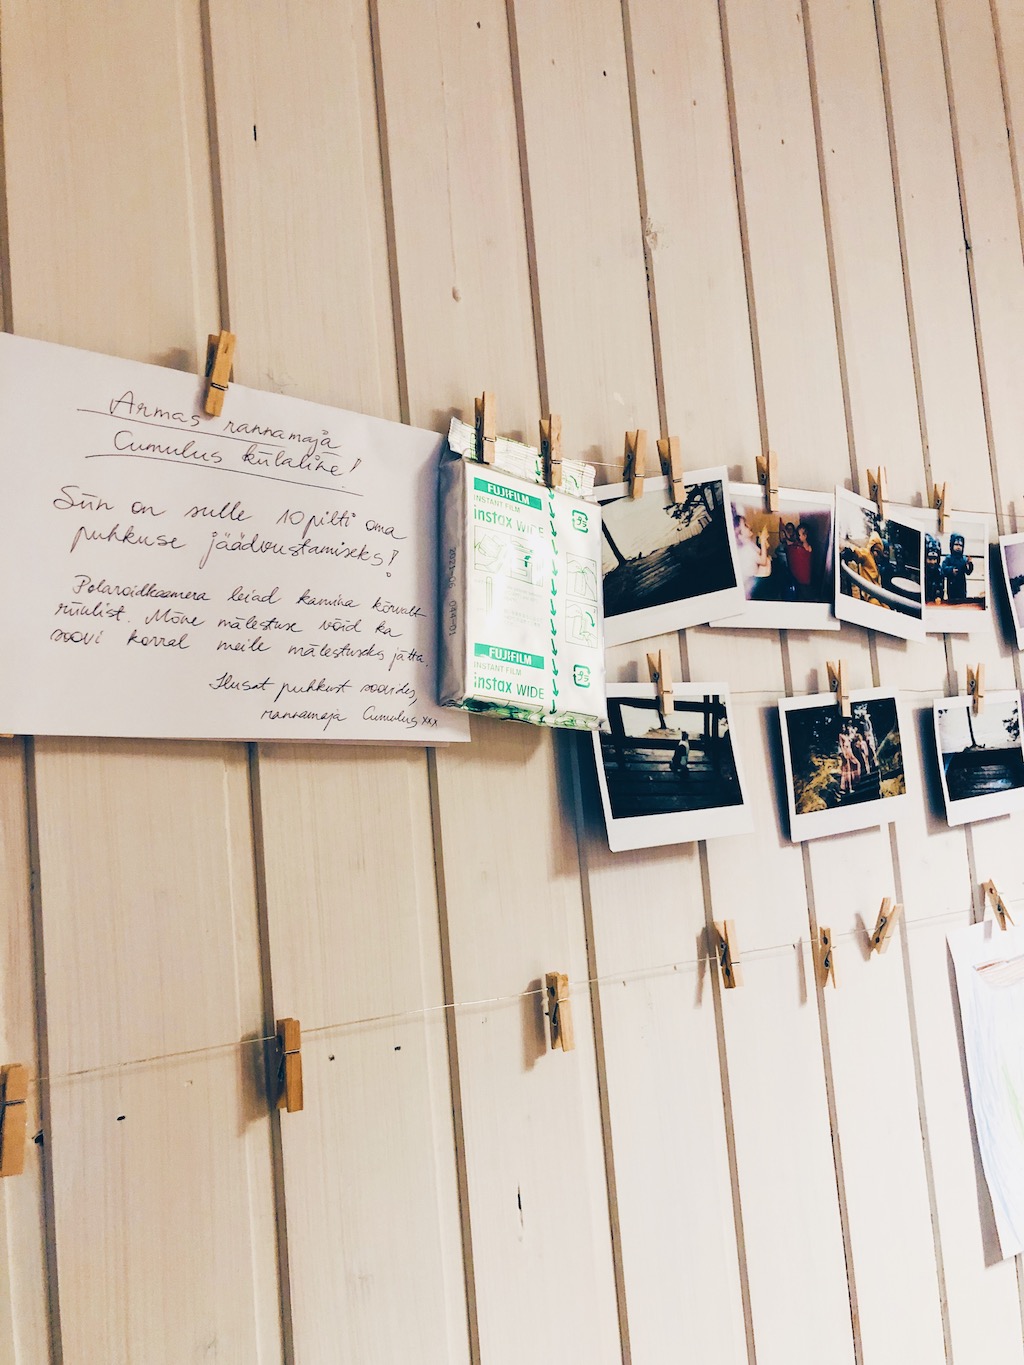 Armas rannamaja
Cumulus külaline!
Siin on sulle 10 pilti oma
puhkuse jäädvustamiseks!
Polaroidkaamera leiad kamina kõrvalt
riiulist. Mõne mälestuse võid ka
soovi korral meile mälestuseks jätta.
Ilusat puhkust soovides,
rannamaja Cumulus xxx
FUJIFILM
INSTANT FILM
instax WIDE
2021-06
FUJIFILM
INSTANT FILM
instax WIDE